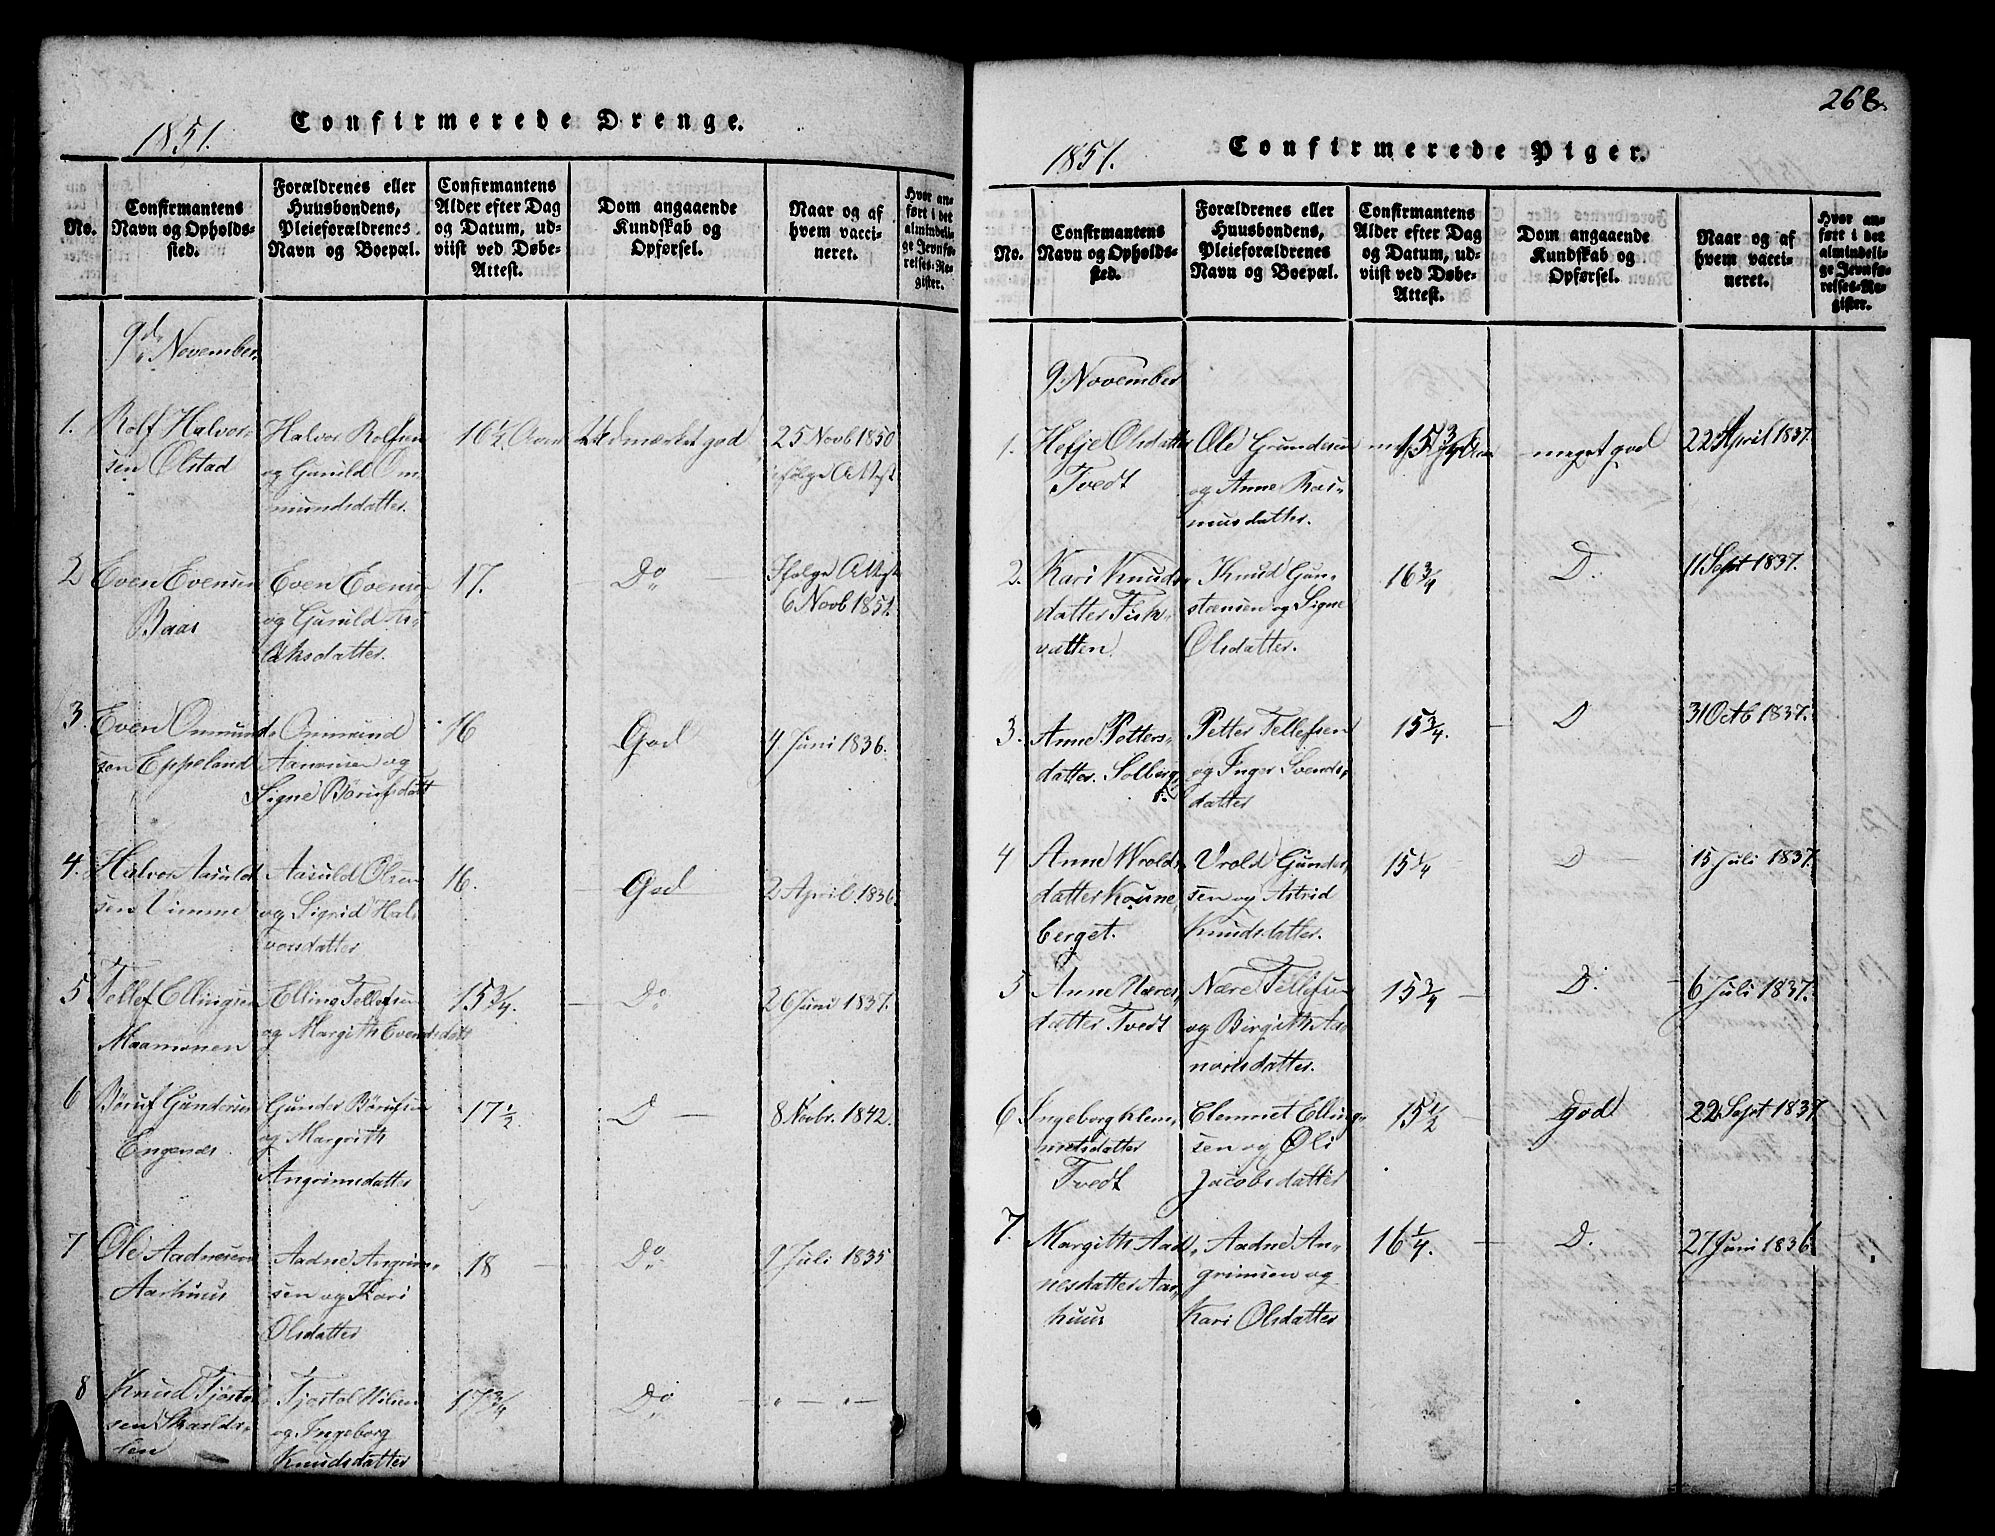 Confirmerede Drenge.
1851.
No.
Confirmantens
Navn og Opholds-
sted.
Forældrenes eller
Huusbondens,
Pleieforældrenes
Navn og Boepæl.
Confirmantens
Alder efter Dag
og Datum, ud-
viist ved Døbe-
Attest.
Dom angaaende
Kundskab og
Opførsel.
Naar og af
hvem vacci-
neret.
Hvor an-
ført i det
almindeli-
ge Jevnfø-
relses-Re-
gister.
9de November.
1.
Rolf Halvor-
sen Olstad
Halvor Rolfsen
og Gunild Om-
mundsdatter.
16½ Aar
Udmærket god
25 Novb 1850
ifølge Attest
2
Even Evensen
Baas
Even Evensen
og Gunild As-
laksdatter.
17.
Do
Ifølge Attest
6 Novb 1851.
3.
Even Ommund-
sen Eppeland
Ommund
Aanonsen og
Signe Børufsdatt
16
God
4 Juni 1836.
4.
Halvor Aasuld
sen Vimme
Aasuld Olsen
og Sigrid Hal-
vorsdatter
16.
God
2 April 1836.
5
Tellef Ellingsen
Maamonen
Elling Tellefsen
og Margith Evendsdatt
15¾.
Do
26 Juni 1837.
6
Børuf Gundersen
Engenes
Gunder Børufsen
og Margrith
Angrimsdatter
17½
D
8 Novbr. 1842.
7
Ole Aadnesen
Aarhuus
Aadne Angrim-
sen og Kari
Olsdatter
18
Do
9 Juli 1835
8
Knud Tjøstol
sen Skarlds-
len
Tjøstol Nilsen
og Ingeborg
Knudsdatter
17¾
Do
" — " —
268.
Confirmerede Piger.
1851.
No.
Confirmantens
Navn og Opholds-
sted.
Forældrenes eller
Huusbondens,
Pleieforældrenes
Navn og Boepæl.
Confirmantens
Alder efter Dag
og Datum, ud-
viist ved Døbe-
Attest.
Dom angaaende
Kundskab og
Opførsel.
Naar og af
hvem vacci-
neret.
Hvor an-
ført i det
almindeli-
ge Jevnfø-
relses-Re-
gister.
9 November
1.
Hefje Olsdatter
Tvedt
Ole Grundesen
og Anne Ras-
musdatter.
15¾ Aar
meget god
22 April 1837.
2.
Kari Knuds-
datter Fisk-
vatten
Knud Gun-
stensen og Signe
Olsdatter.
16¾
D.
11 Sept 1837.
3.
Anne Petters-
datter. Solberg
Petter Tellefsen
og Inger Svends-
datter
15¾.
D
31 Octb 1837.
4
Anne Wrolds-
datter Koune
berget.
Vrold Gunder-
sen og Astrid
Knudsdatter.
15¼
D
15 Juli 1837.
5
Anne Næres-
datter Tvedt
Nære Tellefsen
og Birgith Aa-
norsdatter.
15¾
D.
6 Juli 1837.
6
Ingeborg Klem-
metsdatter
Tvedt
Clemmet Elling-
sen og Øli
Jacobsdatter
15½
god
22 Sept 1837
7.
Margith Aad-
nesdatter Aar-
huus
Aadne An-
grimsen og
Kari Olsdatter
16¼.
D.
27 Juni 1836